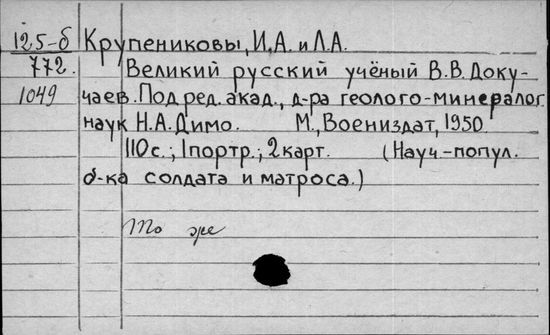 125-б Крупениковы, И.А. и Л.А.
772. Великий русский учёный В.В. Доку-
1049 чаев. Под ред. акад., д-ра геолого-минералог.
наук Н.А. Димо. М., Воениздат, 1950.
110 с.; 1 портр.; 2 карт. (Науч-попул.
б-ка солдата и матроса.)
То же